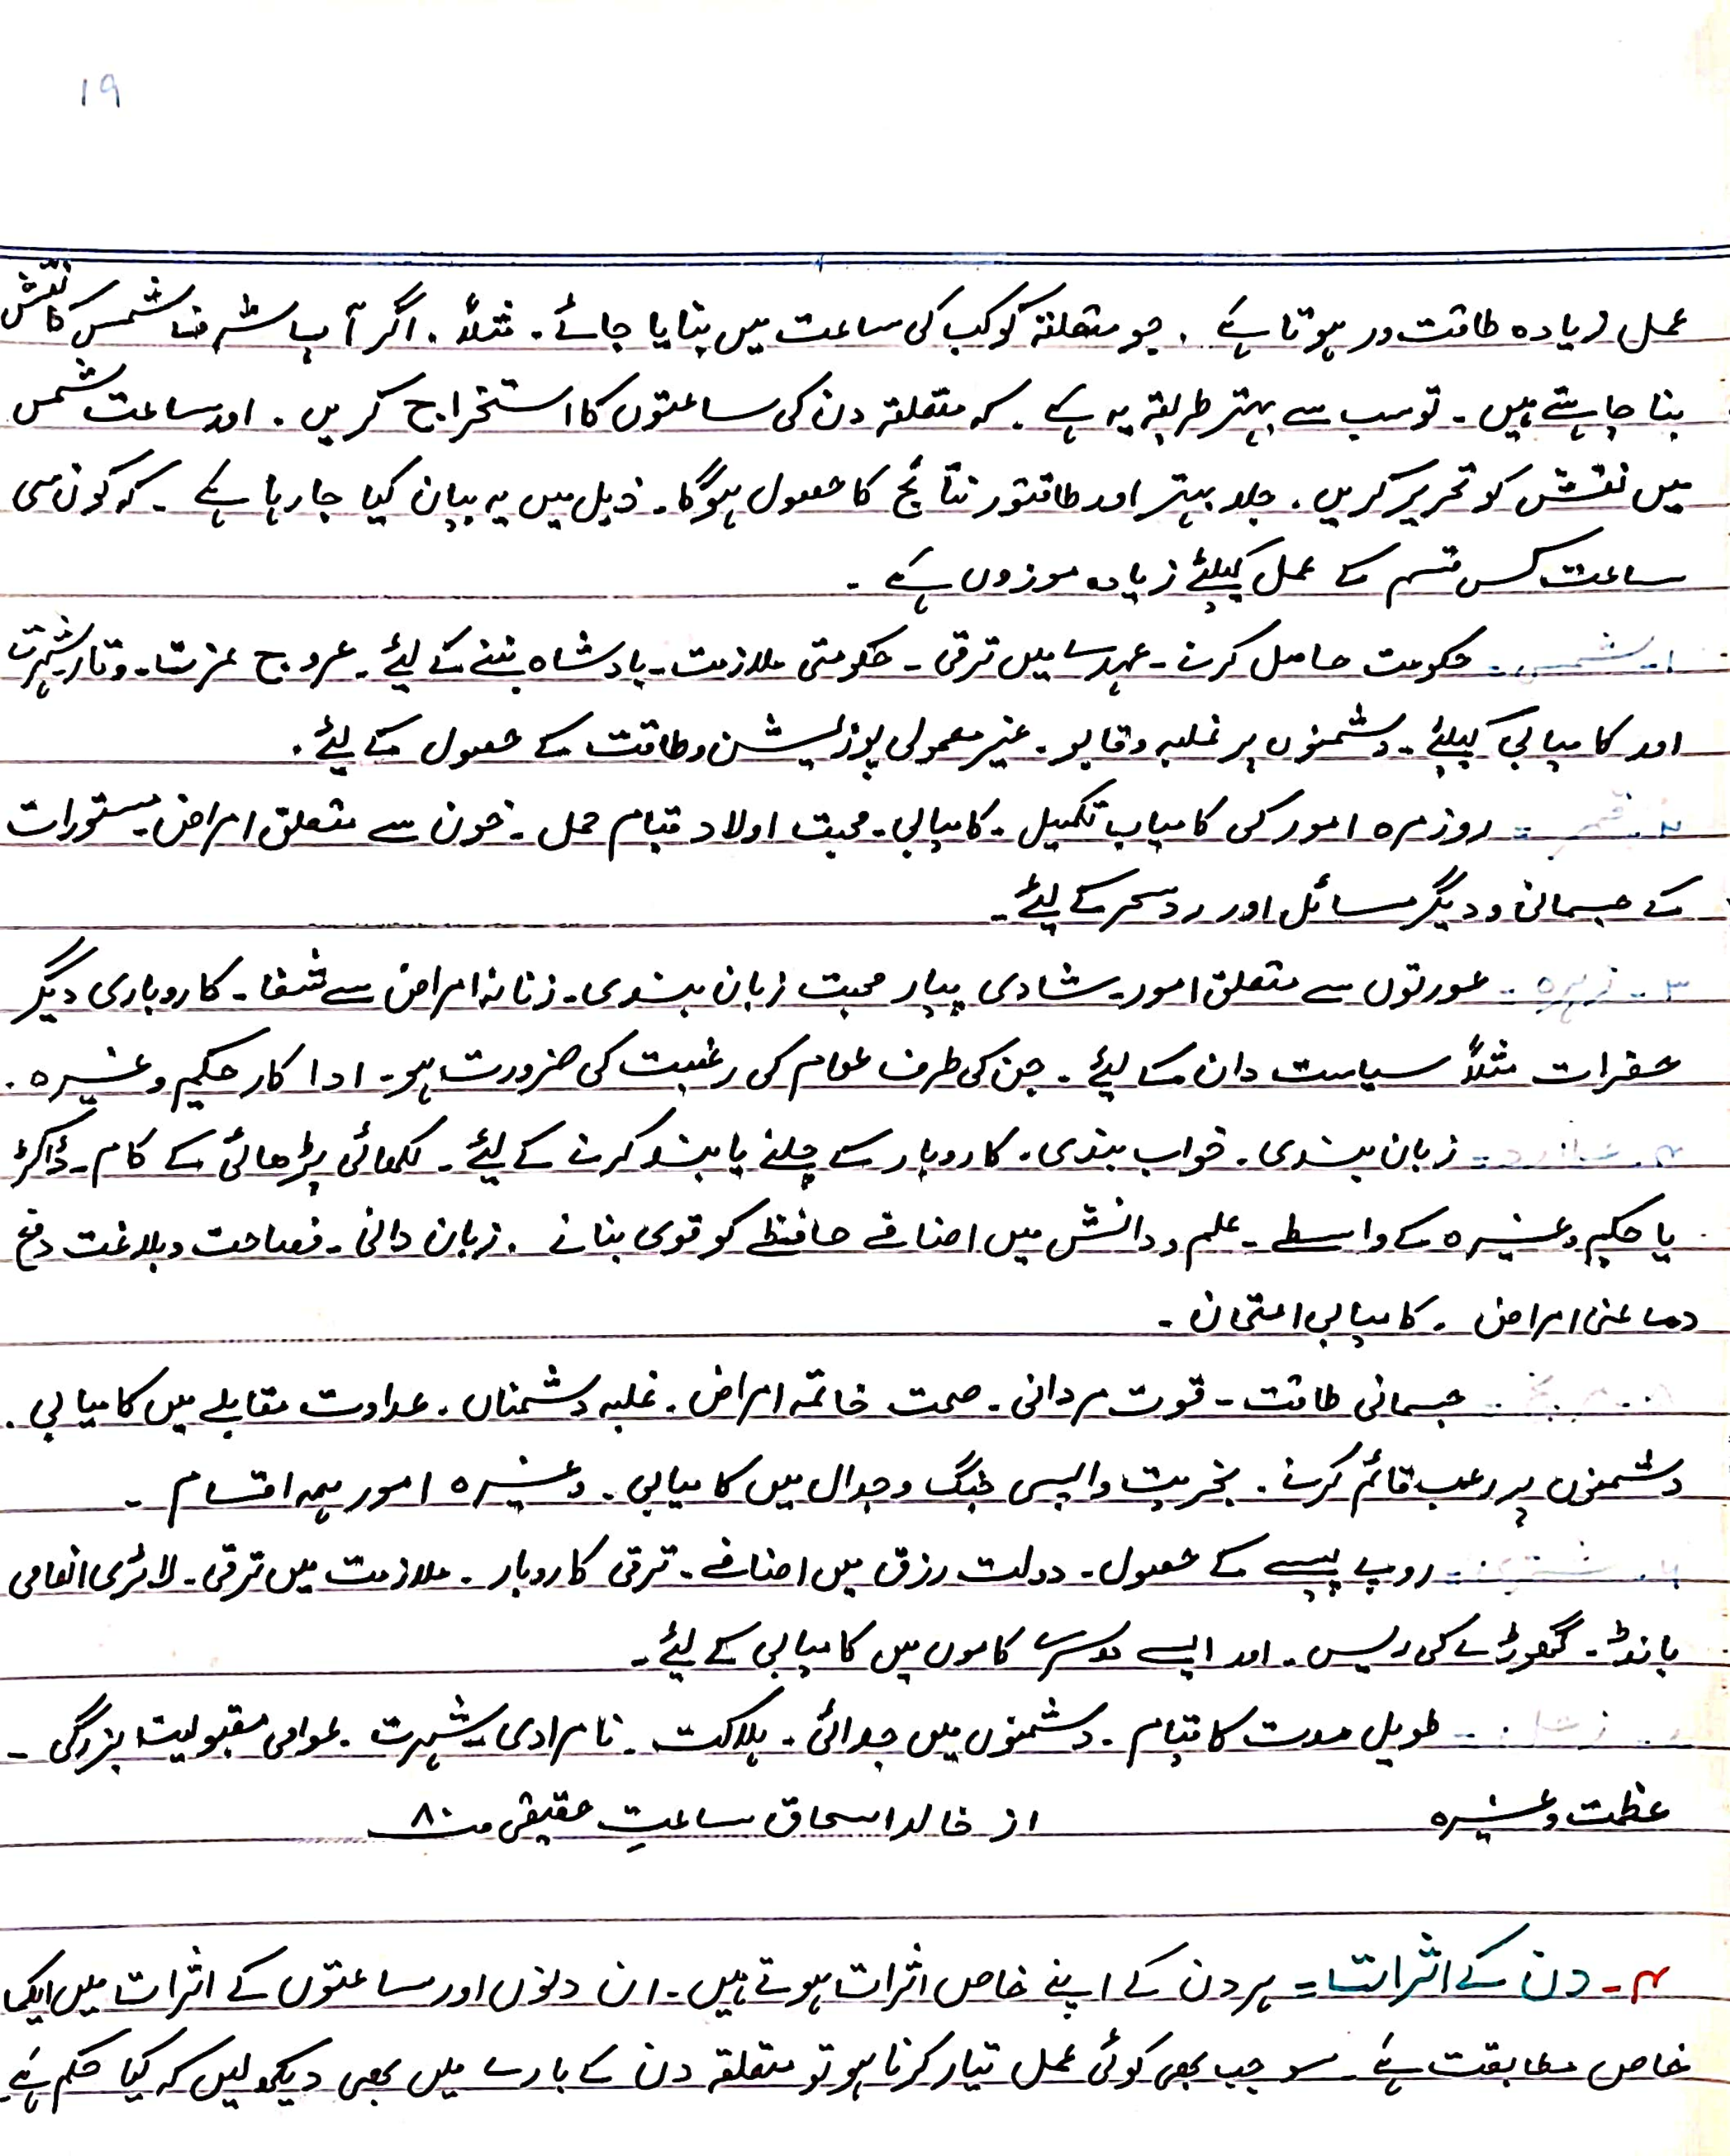 ۱۹
عمل زیادہ طاقت ور ہوتا ہے ۔ جو متعلقہ کوکب کی ساعت میں بنایا جائے ۔ مثلاً ۔ اگر آپ شرف شمس کا نقش
بنا چاہتے ہیں ۔ تو سب سے بہتر طریقہ یہ ہے ۔ کہ متعلقہ دن کی ساعتوں کا استخراج کریں ۔ اور ساعت شمس
میں نقش کو تحریر کریں ۔ جلد بہتر اور طاقتور نتائج کا حصول ہوگا ۔ ذیل میں یہ بیان کیا جا رہا ہے ۔ کہ کون سی
ساعت کس قسم کے عمل کیلئے زیادہ موزوں ہے ۔
۱ ۔ شمس ۔ حکومت حاصل کرنے ۔ عہدے میں ترقی ۔ حکومتی ملازمت ۔ بادشاہ بننے کے لیئے ۔ عروج عزت ۔ وقار شہرت
اور کامیابی کیلئے ۔ دشمنوں پر غلبہ و قابو ۔ غیر معمولی پوزیشن و طاقت کے حصول کے لیئے ۔
۲ ۔ قمر = روزمرہ امور کی کامیاب تکمیل ۔ کامیابی ۔ محبت اولاد قیام حمل ۔ خون سے متعلق امراض ۔ مستورات
کے جسمانی و دیگر مسائل اور رد سحر کے لیئے ۔
۳ ۔ زہرہ ۔ عورتوں سے متعلق امور ۔ شادی پیار محبت زبان بندی ۔ زنانہ امراض سے شفا ۔ کاروباری دیگر
حضرات مثلاً سیاست دان کے لیئے ۔ جن کی طرف عوام کی رغبت کی ضرورت ہو ۔ اداکار حکیم وغیرہ ۔
۴ ۔ عطارد ۔ زبان بندی ۔ خواب بندی ۔ کاروبار کے چلنے یا بند کرنے کے لیئے ۔ لکھائی پڑھائی کے کام ۔ ڈاکٹر
یا حکیم وغیرہ کے واسطے ۔ علم و دانش میں اضافے حافظے کو قوی بنانے ۔ زبان دانی ۔ فصاحت و بلاغت دفع
دماغی امراض ۔ کامیابی امتحان ۔
جسمانی طاقت ۔ قوت مردانی ۔ صحت خاتمہ امراض ۔ غلبہ دشمناں ۔ عداوت مقابلے میں کامیابی ۔
دشمنوں پر رعب قائم کرنے ۔ بخریت واپسی جنگ و جدال میں کامیابی ۔ وغیرہ امور ہمہ اقسام ۔
۶ ۔ مشتری ۔ روپے پیسے کے حصول ۔ دولت رزق میں اضافے ۔ ترقی کاروبار ۔ ملازمت میں ترقی ۔ لاٹری انعامی
بانڈ ۔ گھوڑے کی ریس ۔ اور ایسے دوسرے کاموں میں کامیابی کے لیئے ۔
زحل ۔ طویل مدت کا قیام ۔ دشمنوں میں جدائی ۔ ہلاکت ۔ نامرادی ۔ شہرت ۔ عوامی مقبولیت بزرگی ۔
عظمت وغیرہ از خالد اسحاق ساعتِ حقیقی صـ ۸۰
۴ ۔ دن کے اثرات = ہر دن کے اپنے خاص اثرات ہوتے ہیں ۔ ان دنوں اور ساعتوں کے اثرات میں ایک
خاص مطابقت ہے ۔ سو جب بھی کوئی عمل تیار کرنا ہو تو متعلقہ دن کے بارے میں بھی دیکھ لیں کہ کیا حکم ہے ۔